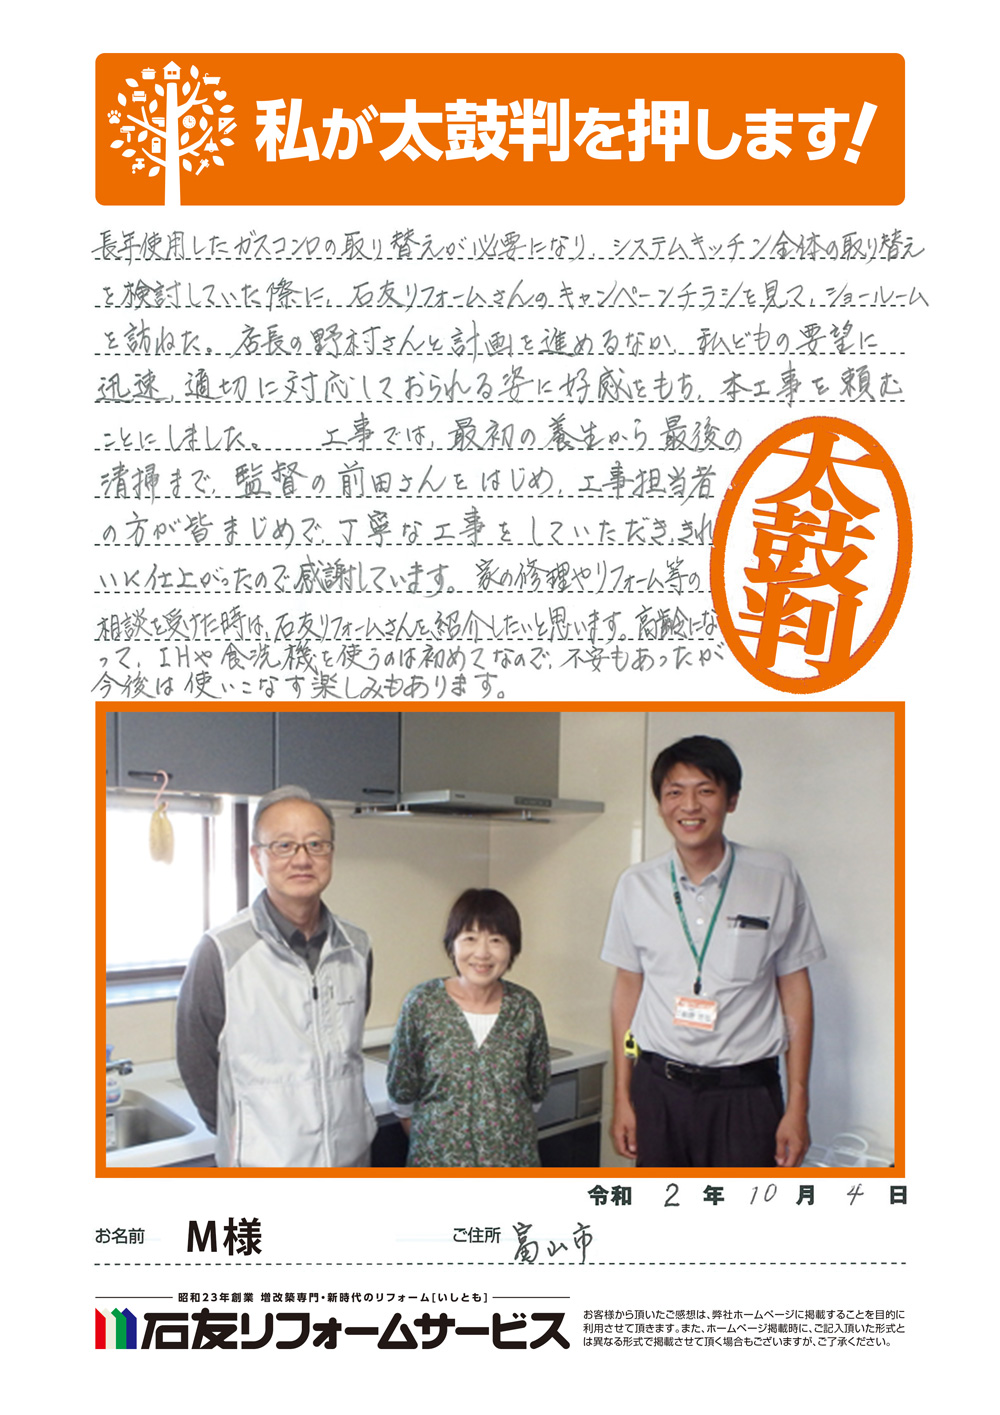 私が太鼓判を押します!
長年使用したガスコンロの取り替えが必要になり、システムキッチン全体の取り替え
を検討していた際に、石友リフォームさんのキャンペーンチラシを見て、ショールーム
を訪ねた。店長の野村さんと計画を進めるなか、私どもの要望に
迅速、適切に対応しておられる姿に好感をもち、本工事を頼む
ことにしました。 工事では、最初の養生から最後の
清掃まで、監督の前田さんをはじめ、工事担当者
の方が皆まじめで、丁寧な工事をしていただき、きれ
いに仕上がったので感謝しています。家の修理やリフォーム等の
相談を受けた時は、石友リフォームさんを紹介したいと思います。高齢にな
って、IHや食洗機を使うのは初めてなので、不安もあったが
今後は使いこなす楽しみもあります。
太鼓判
令和 2 年 10 月 4 日
お名前 M様 ご住所 富山市
昭和23年創業 増改築専門・新時代のリフォーム[いしとも]
石友リフォームサービス
お客様から頂いたご感想は、弊社ホームページに掲載することを目的に
利用させて頂きます。また、ホームページ掲載時に、ご記入頂いた形式と
は異なる形式で掲載させて頂く場合もございますが、ご了承ください。